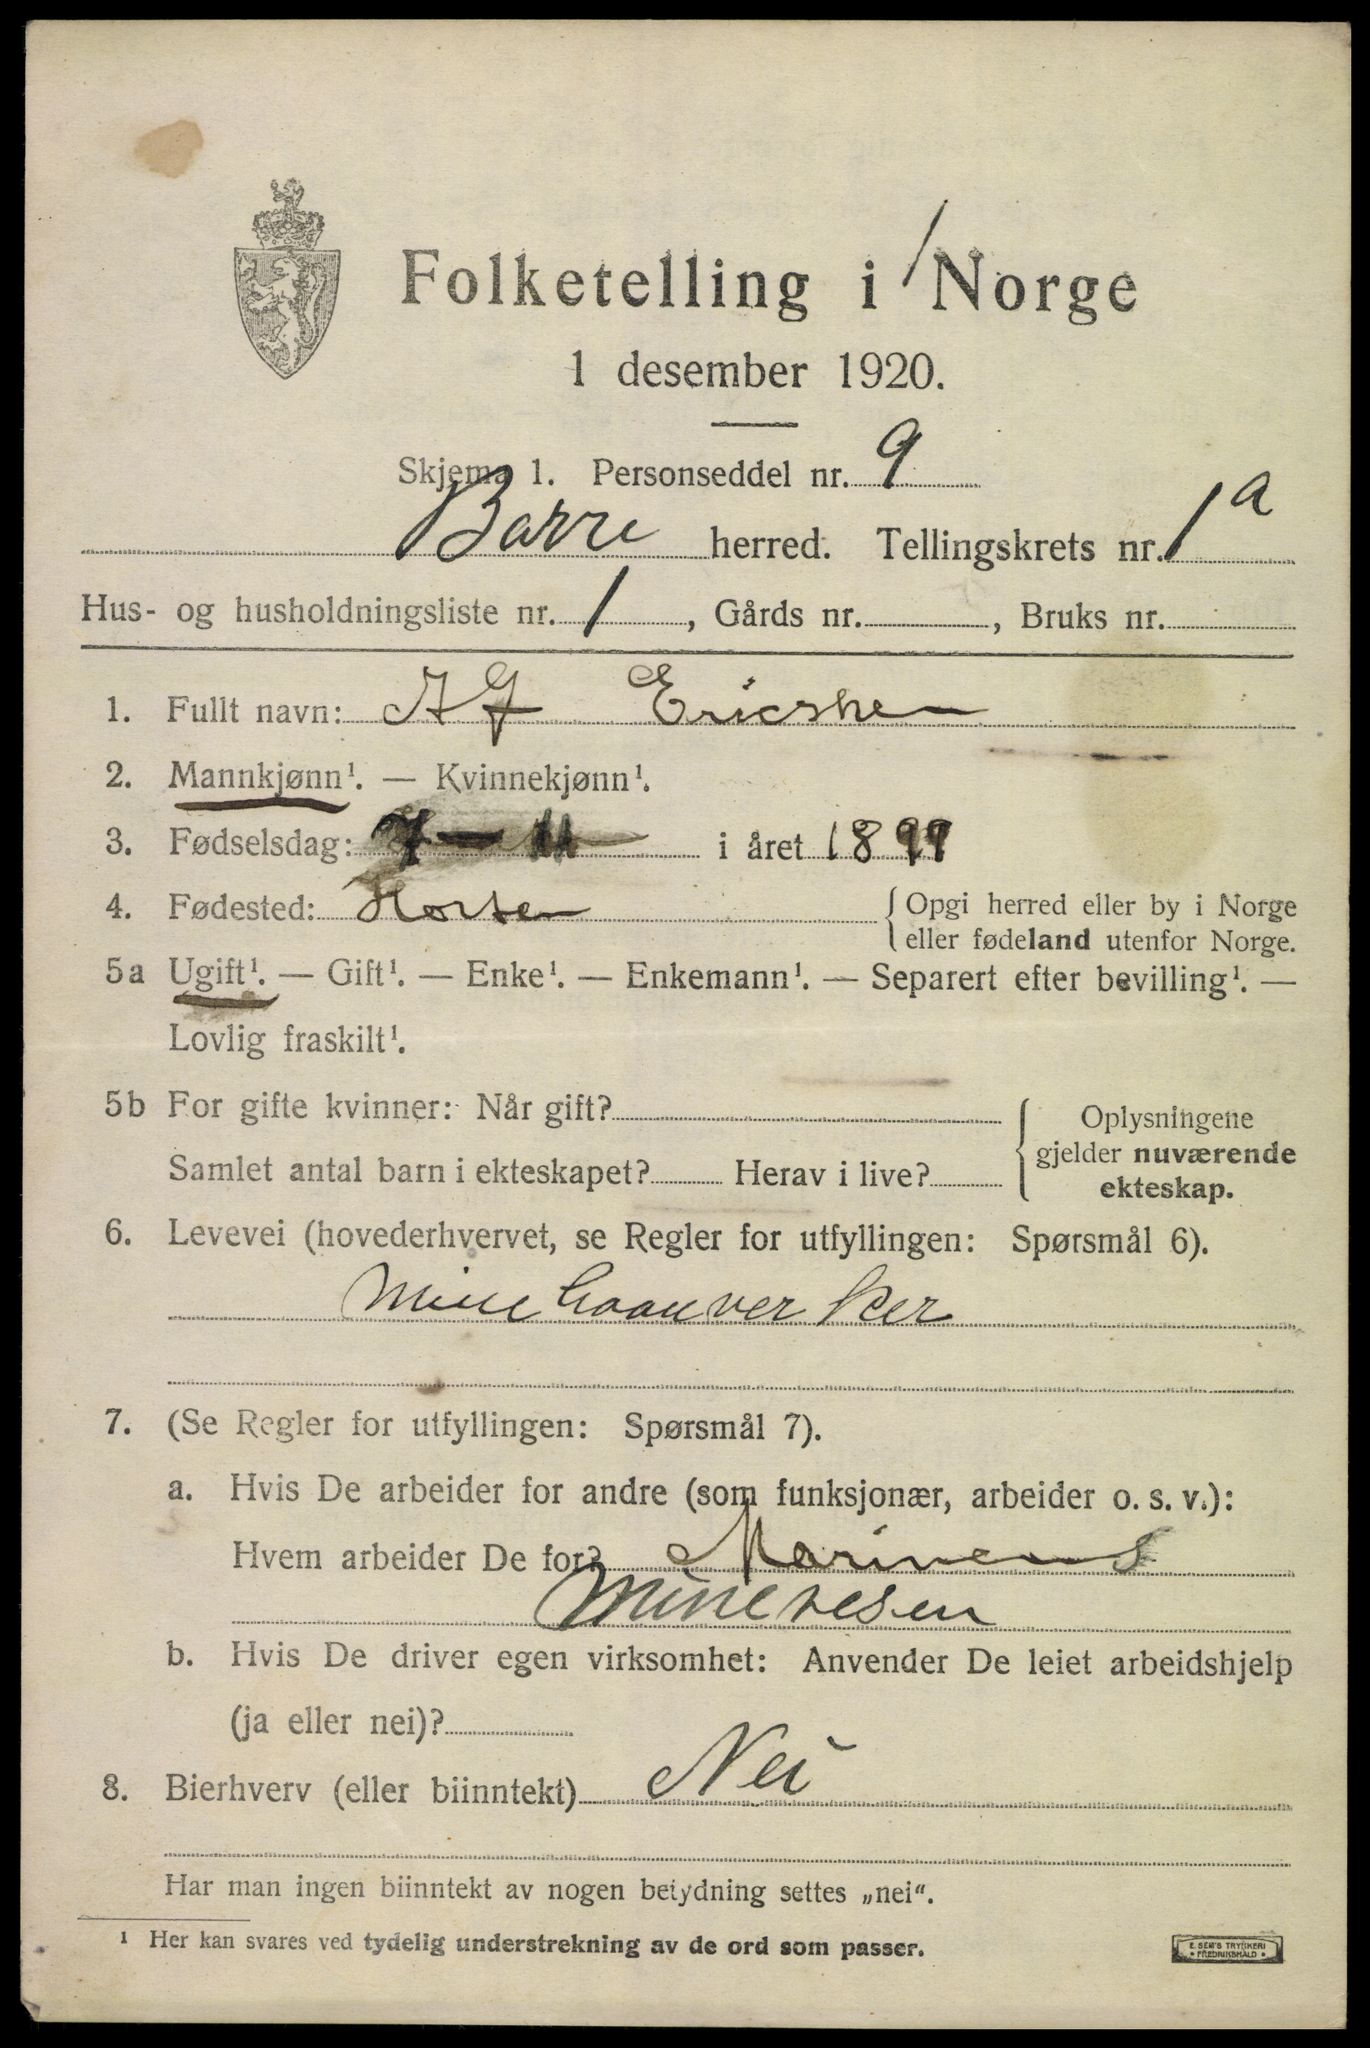 Folketelling i Norge
1 desember 1920.
Skjema 1. Personseddel nr. 9
Borre herred. Tellingskrets nr. 1a
Hus- og husholdningsliste nr. 1, Gårds nr. , Bruks nr.
1. Fullt navn: Ericshen
2. Mannkjønn¹. — Kvinnekjønn¹.
3. Fødselsdag: 7 — 11 i året 1899
4. Fødested: Horten { Opgi herred eller by i Norge
eller fødeland utenfor Norge.
5a Ugift¹. — Gift¹. — Enke¹. — Enkemann¹. — Separert efter bevilling¹. —
Lovlig fraskilt¹.
5b For gifte kvinner: Når gift?
Samlet antal barn i ekteskapet? Herav i live?
{ Oplysningene
gjelder nuværende
ekteskap.
6. Levevei (hovederhvervet, se Regler for utfyllingen: Spørsmål 6).
Minehaanverker
7. (Se Regler for utfyllingen: Spørsmål 7).
a. Hvis De arbeider for andre (som funksjonær, arbeider o. s. v.):
Hvem arbeider De for? Marinens
Minevesen
b. Hvis De driver egen virksomhet: Anvender De leiet arbeidshjelp
(ja eller nei)?
8. Bierhverv (eller biinntekt) Nei
Har man ingen biinntekt av nogen betydning settes „nei“.
¹ Her kan svares ved tydelig understrekning av de ord som passer.
E. SEM'S TRYKKERI
• FREDRIKSHALD •